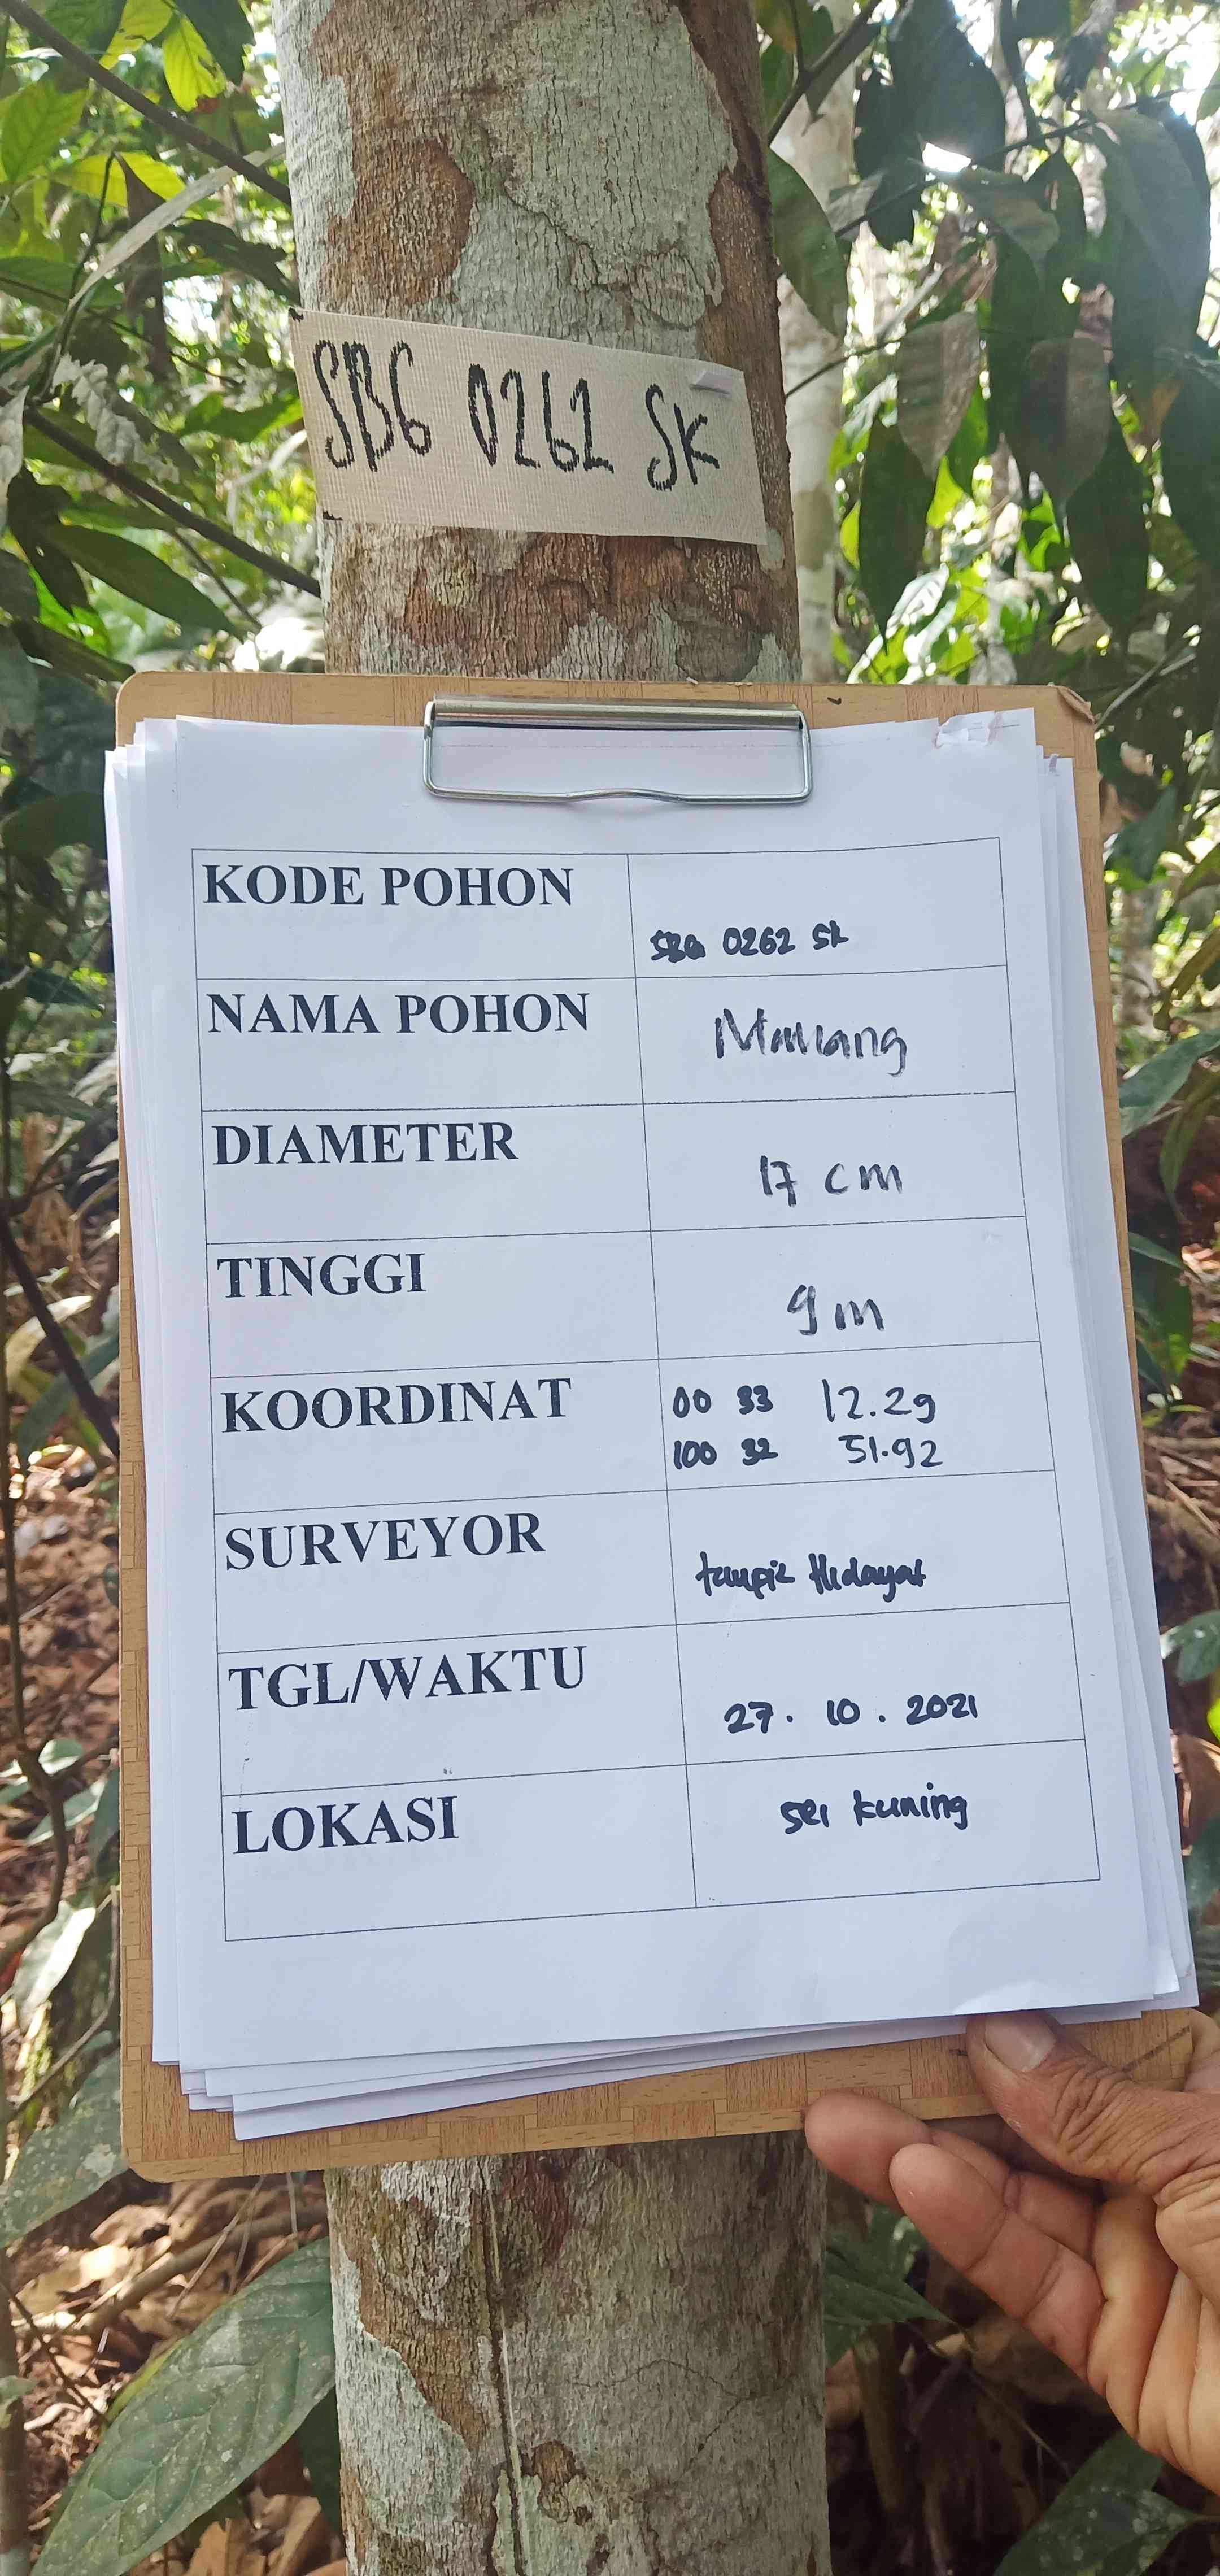 SBG 0262 SK
KODE POHON
SBG 0262 SK
NAMA POHON
DIAMETER
17 cm
TINGGI
9 m
KOORDINAT
00 33 12.29
100 32 51.92
SURVEYOR
taupik Hidayat
TGL/WAKTU
27. 10. 2021
LOKASI
sei kuning